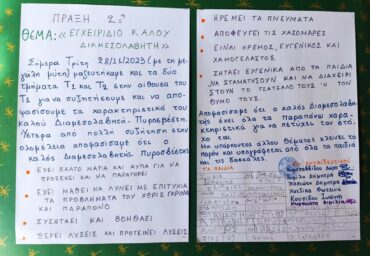 ΠΡΑΞΗ 2η
ΘΕΜΑ: «ΕΓΧΕΙΡΙΔΙΟ ΚΑΛΟΥ
ΔΙΑΜΕΣΟΛΑΒΗΤΗ»
Σήμερα Τρίτη 28/11/2023 (με τη με
γάλη μύτη) μαζευτήκαμε και τα δύο
τμήματα Τ1 και Τ2 στην αίθουσα του
Τ1 για να συζητήσουμε και να απο-
φασίσουμε τα χαρακτηριστικά του
καλού Διαμεσολαβητή - Πυροσβέστη.
Ύστερα από πολλή συζήτηση στην
ολομέλεια αποφασίσαμε ότι ο
καλός Διαμεσολαβητής Πυροσβέστης
ΕΧΕΙ ΕΚΑΤΟ ΜΑΤΙΑ ΚΑΙ ΑΥΤΙΑ ΓΙΑ ΝΑ
ΠΡΟΣΕΧΕΙ ΚΑΙ ΝΑ ΠΑΡΑΤΗΡΕΙ
ΕΧΕΙ ΜΑΘΕΙ ΝΑ ΛΥΝΕΙ ΜΕ ΕΠΙΤΥΧΙΑ
ΤΑ ΠΡΟΒΛΗΜΑΤΑ ΤΟΥ ΧΩΡΙΣ ΓΚΡΙΝΙΑ
ΚΑΙ ΠΑΡΑΠΟΝΟ
ΣΥΖΗΤΑΕΙ ΚΑΙ ΒΟΗΘΑΕΙ
ΞΕΡΕΙ ΛΥΣΕΙΣ ΚΑΙ ΠΡΟΤΕΙΝΕΙ ΛΥΣΕΙΣ
ΗΡΕΜΕΙ ΤΑ ΠΝΕΥΜΑΤΑ
ΑΠΟΦΕΥΓΕΙ ΤΙΣ ΧΑΖΟΜΑΡΕΣ
ΕΙΝΑΙ ΗΡΕΜΟΣ, ΕΥΓΕΝΙΚΟΣ ΚΑΙ
ΧΑΜΟΓΕΛΑΣΤΟΣ
ΖΗΤΑΕΙ ΕΥΓΕΝΙΚΑ ΑΠΟ ΤΑ ΠΑΙΔΙΑ
ΝΑ ΣΤΑΜΑΤΗΣΟΥΝ ΚΑΙ ΝΑ ΔΙΑΧΕΙΡΙ
ΣΤΟΥΝ ΤΟ ΤΣΑΤΣΑΛΟ ΤΟΥΣ Ή ΤΟΝ
ΘΥΜΟ ΤΟΥΣ.
Αποφασίσαμε ότι ο καλός Διαμεσολα
βητής έχει όλα τα παραπάνω χαρα-
κτηριστικά για να πετύχει τον στό-
χο του.
Μη υπάρχοντος άλλου θέματος κλείνει το
παρόν και υπογράφεται από όλα τα παιδιά
και τις δασκάλες.
ΤΑ ΠΑΙΔΙΑ
ΟΙ ΕΚΠΑΙΔΕΥΤΙΚΟΙ